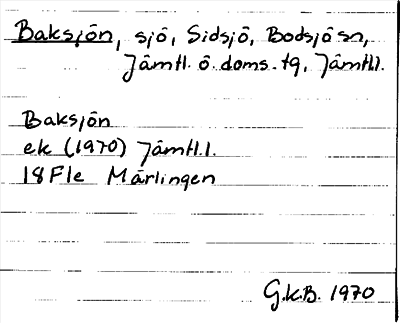 Baksjön, sjö, Sidsjö, Bodsjö sn,
Jämtl. ö. doms. tg, Jämtl.l.
Baksjön
ek (1970) Jämtl.l.
18F1e Märlingen
G.K.B. 1970